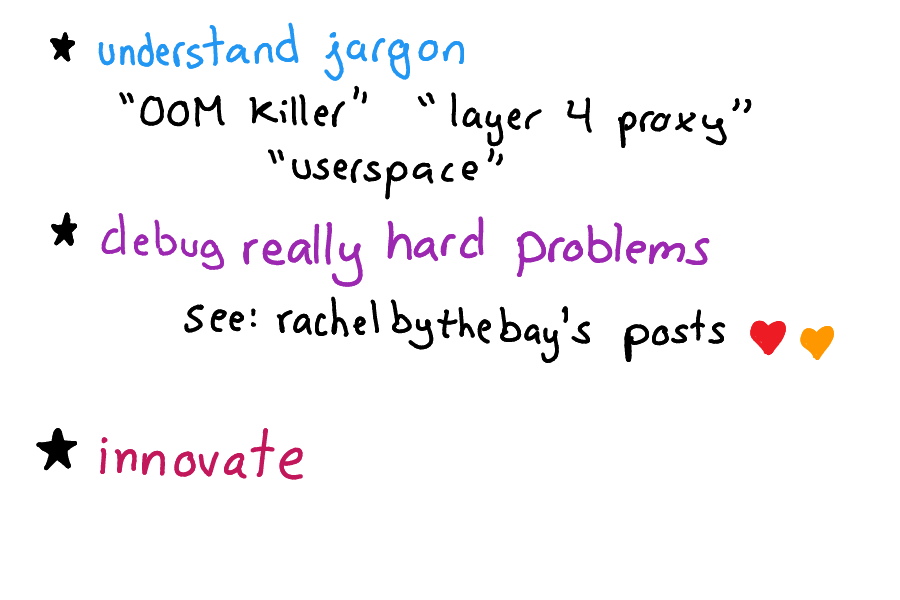 ★ understand jargon
"OOM killer" "layer 4 proxy"
"userspace"
★ debug really hard problems
see: rachelbythebay's posts ❤️ 🧡
★ innovate